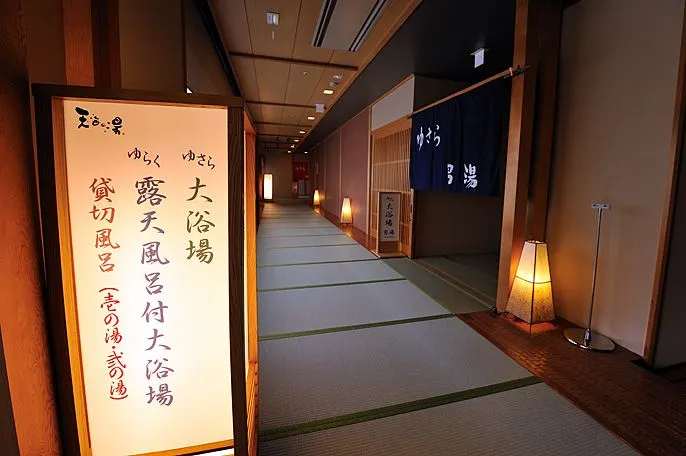 ゆさら
大浴場
ゆらく
露天風呂付大浴場
貸切風呂
(壱の湯・弐の湯)
ゆさら
男湯
大浴場
男湯